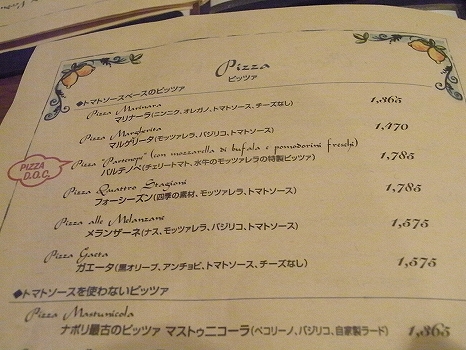 Pizza
ピッツァ
◆トマトソースベースのピッツァ
Pizza Marinara
マリナーラ(ニンニク、オレガノ、トマトソース、チーズなし) 1,365
Pizza Margherita
マルゲリータ(モッツァレラ、バジリコ、トマトソース) 1,470
PIZZA D.O.C.
Pizza "Partenope" (con mozzarella di bufala e pomodorini freschi)
パルテノペ(チェリートマト、水牛のモッツァレラの特製ピッツァ) 1,785
Pizza Quattro Stagioni
フォーシーズン(四季の素材、モッツァレラ、トマトソース) 1,785
Pizza alle Melanzani
メランザーネ(ナス、モッツァレラ、バジリコ、トマトソース) 1,575
Pizza Gaeta
ガエータ(黒オリーブ、アンチョビ、トマトソース、チーズなし) 1,575
◆トマトソースを使わないピッツァ
Pizza Mastunicola
ナポリ最古のピッツァ マストゥニコーラ(ペコリーノ、バジリコ、自家製ラード) 1,365